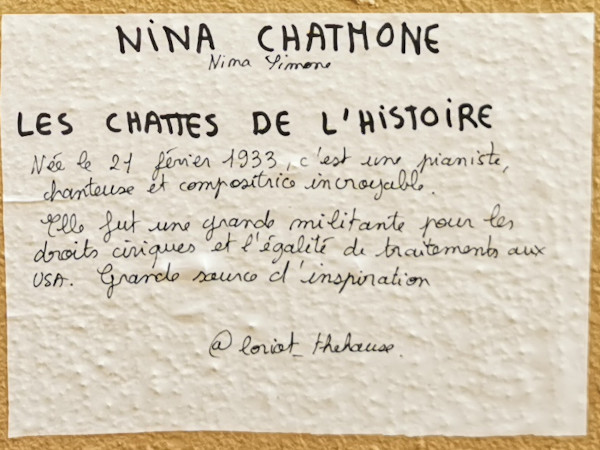 NiNA CHATMONE
Nina Simone
LES CHATTES DE L'HiSTOiRE
Née le 21 février 1933, c'est une pianiste,
chanteuse et compositrice incroyable.
Elle fut une grande militante pour les
droits civiques et l'égalité de traitements aux
USA. Grande source d'inspiration
@loriot_thehause.